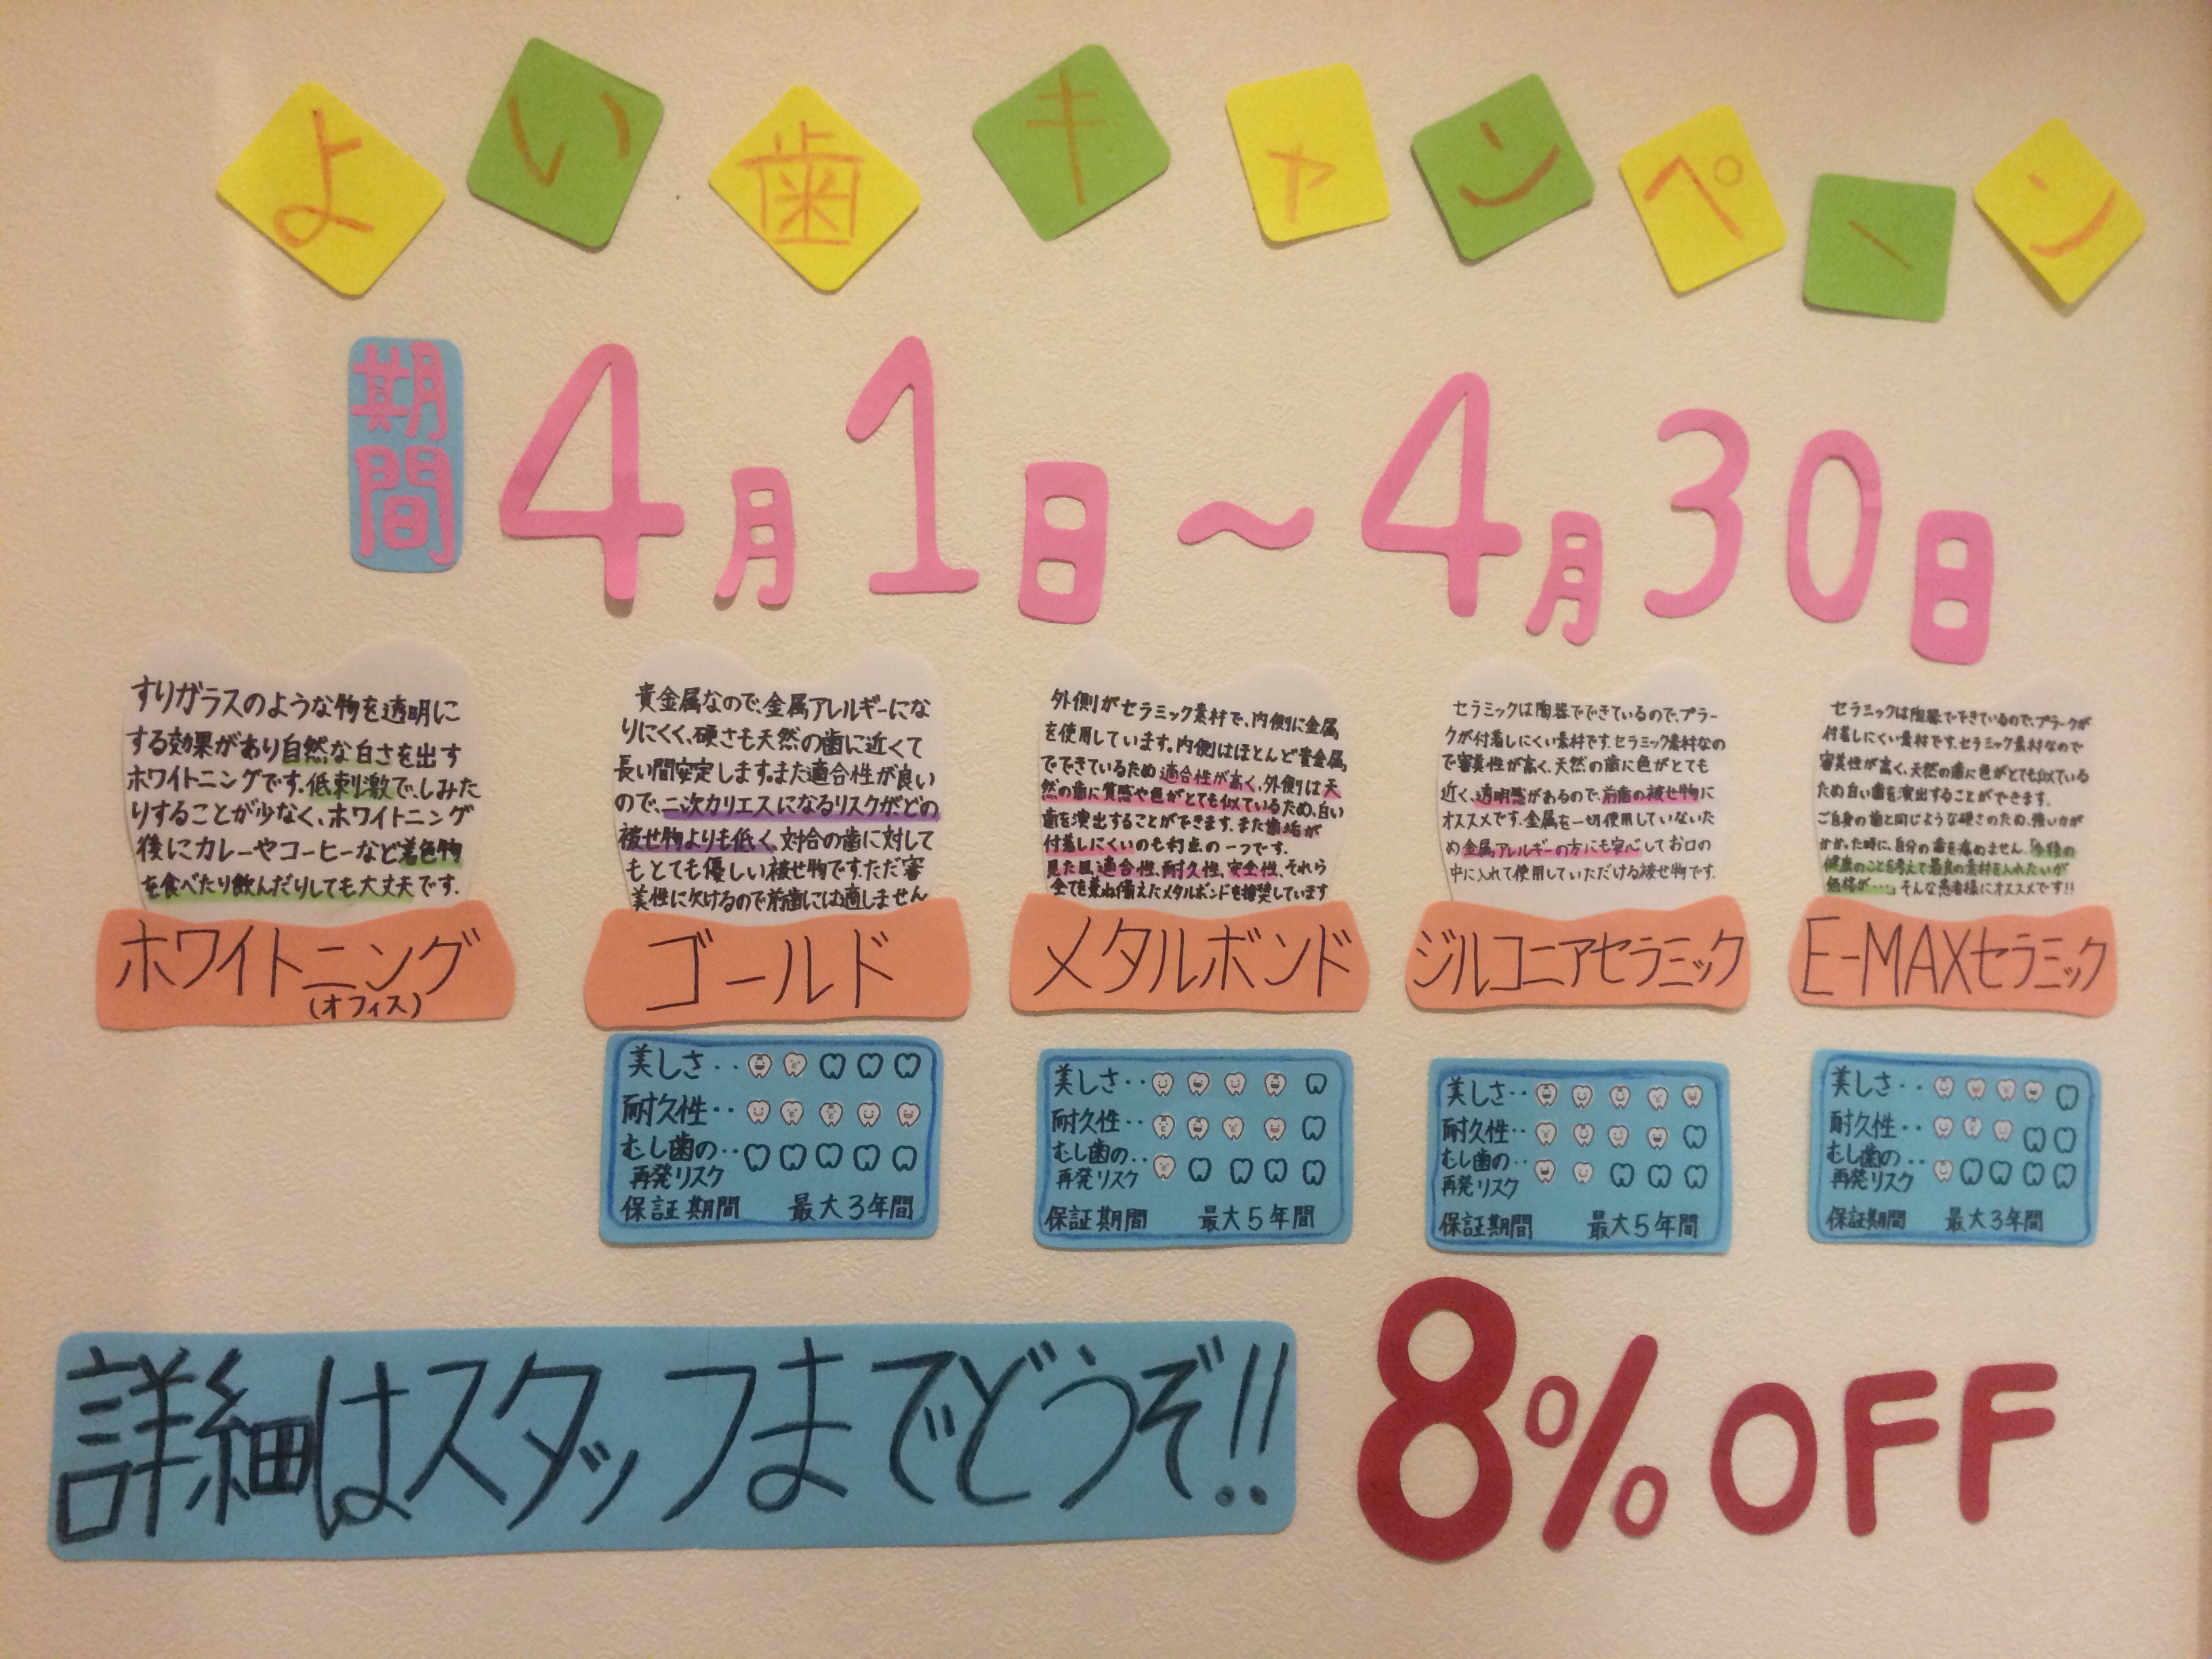 よい歯キャンペーン
期間 4月1日～4月30日
すりガラスのような物を透明に
する効果があり自然な白さを出す
ホワイトニングです。低刺激で、しみた
りすることが少なく、ホワイトニング
後にカレーやコーヒーなど着色物
を食べたり飲んだりしても大丈夫です。
ホワイトニング
(オフィス)
貴金属なので、金属アレルギーにな
りにくく、硬さも天然の歯に近くて
長い間安定します。また適合性が良い
ので、二次カリエスになるリスクがどの
被せ物よりも低く、対合の歯に対して
もとても優しい被せ物です。ただ審
美性に欠けるので前歯には適しません
ゴールド
美しさ‥
耐久性‥
むし歯の‥
再発リスク
保証期間 最大3年間
外側がセラミック素材で、内側に金属
を使用しています。内側はほとんど貴金属
でできているため適合性が高く、外側は天
然の歯に質感や色がとても似ているため、白い
歯を演出することができます。また歯垢が
付着しにくいのも利点の一つです。
見た目、適合性、耐久性、安全性、それら
全てを兼ね備えたメタルボンドを推奨しています
メタルボンド
美しさ‥
耐久性‥
むし歯の‥
再発リスク
保証期間 最大5年間
セラミックは陶器でできているので、プラー
クが付着しにくい素材です。セラミック素材なの
で審美性が高く、天然の歯に色がとても
近く、透明感があるので、前歯の被せ物に
オススメです。金属を一切使用していないた
め金属アレルギーの方にも安心してお口の
中に入れて使用していただける被せ物です。
ジルコニアセラミック
美しさ‥
耐久性‥
むし歯の‥
再発リスク
保証期間 最大5年間
セラミックは陶器でできているので、プラークが
付着しにくい素材です。セラミック素材なので
審美性が高く、天然の歯に色がとても似ている
ため白い歯を演出することができます。
ご自身の歯と同じような硬さのため、強い力が
かかった時に、自分の歯を痛めません。「今後の
健康のことを考えて最良の素材を入れたいが
価格が…」そんな患者様にオススメです!!
E-MAXセラミック
美しさ‥
耐久性‥
むし歯の‥
再発リスク
保証期間 最大3年間
詳細はスタッフまでどうぞ!!
8%OFF